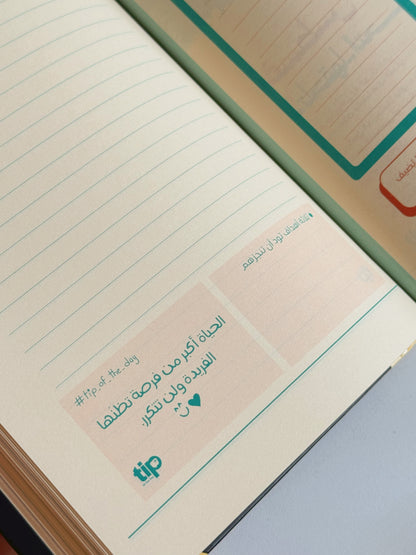 ثلاثة أهداف تود أن تنجزهم
#tip_of_the_day
الحياة أكبر من فرصة تظنها
الفريدة ولن تتكرر.
tip